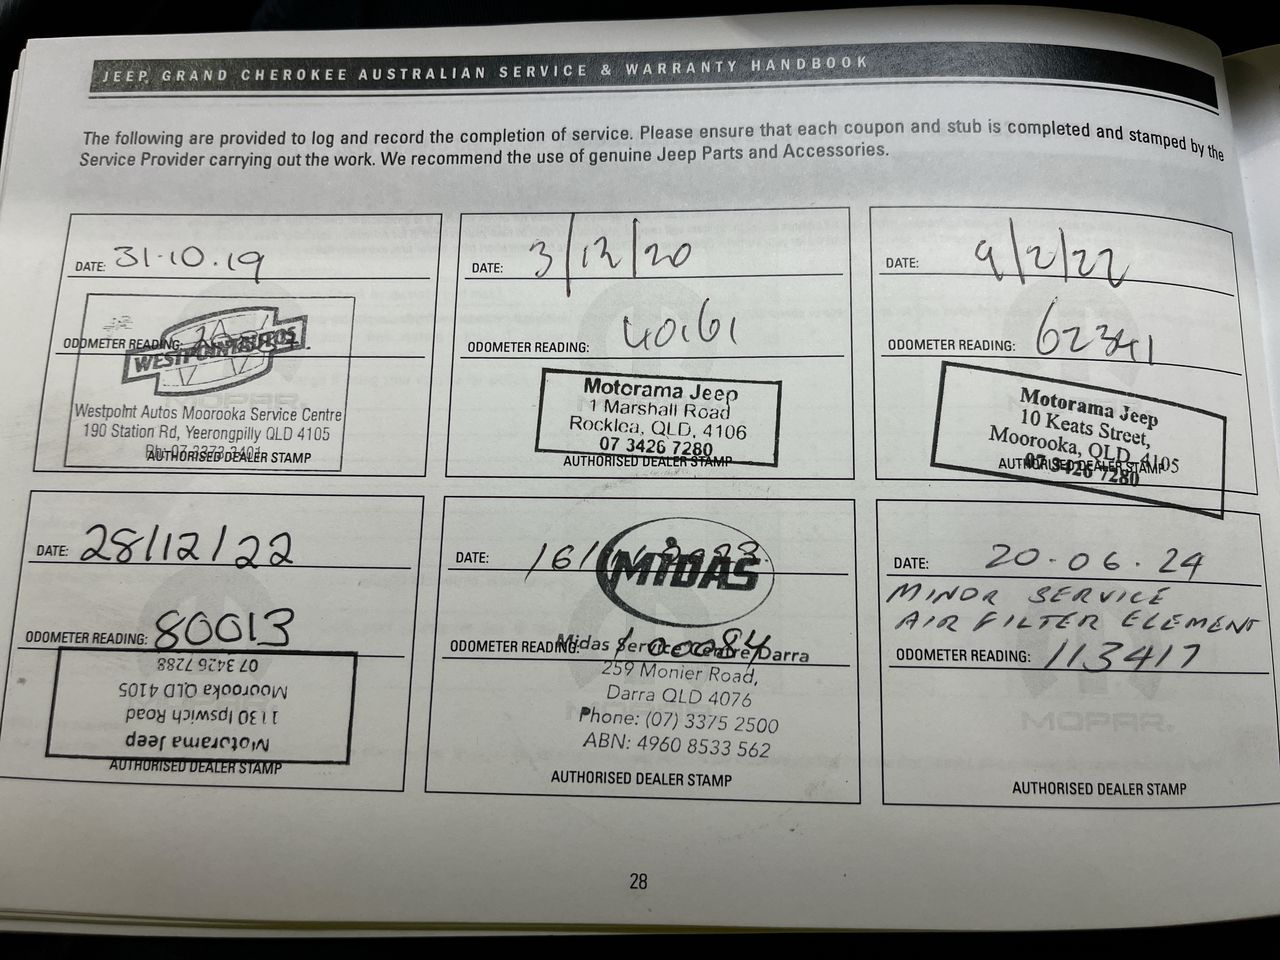 JEEP GRAND CHEROKEE AUSTRALIAN SERVICE & WARRANTY HANDBOOK
The following are provided to log and record the completion of service. Please ensure that each coupon and stub is completed and stamped by the
Service Provider carrying out the work. We recommend the use of genuine Jeep Parts and Accessories.
DATE: 31.10.19
ODOMETER READING:
WESTPOINT AUTOS
Westpoint Autos Moorooka Service Centre
190 Station Rd, Yeerongpilly QLD 4105
Ph: 07 3373
AUTHORISED DEALER STAMP
DATE: 3/12/20
ODOMETER READING: 40161
Motorama Jeep
1 Marshall Road
Rocklea, QLD, 4106
07 3426 7280
AUTHORISED DEALER STAMP
DATE: 9/2/22
ODOMETER READING: 62341
Motorama Jeep
10 Keats Street,
Moorooka, QLD, 4105
07 3426 7280
AUTHORISED DEALER STAMP
DATE: 28/12/22
ODOMETER READING: 80013
Motorama Jeep
1130 Ipswich Road
Moorooka QLD 4105
07 3426 7288
AUTHORISED DEALER STAMP
DATE: 16/ 2023
MIDAS
ODOMETER READING: 100084
Midas Service Centre Darra
259 Monier Road,
Darra QLD 4076
Phone: (07) 3375 2500
ABN: 4960 8533 562
AUTHORISED DEALER STAMP
DATE: 20.06.24
MINOR SERVICE
AIR FILTER ELEMENT
ODOMETER READING: 113417
MOPAR
AUTHORISED DEALER STAMP
28